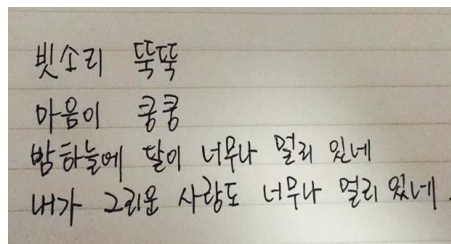 빗소리 뚝뚝
마음이 쿵쿵
밤하늘에 달이 너무나 멀리 있네
내가 그리운 사람도 너무나 멀리 있네.